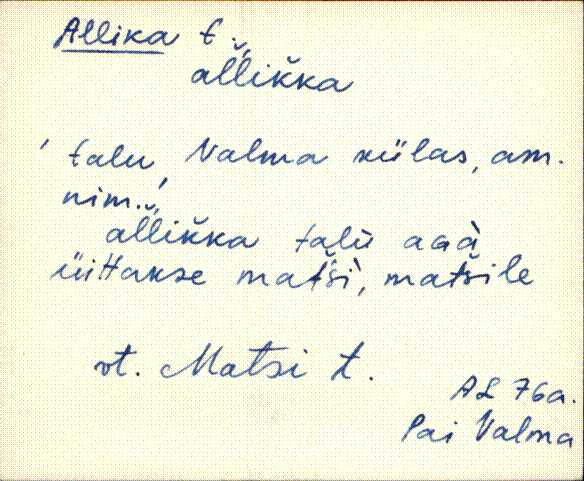 Allika t.,
al̆likka
' talu Valma külas, am.
nim.'
al̆likka talù aGà
üittakse matšì, matšile
vt. Matsi t.
AL 76a.
Pai Valma